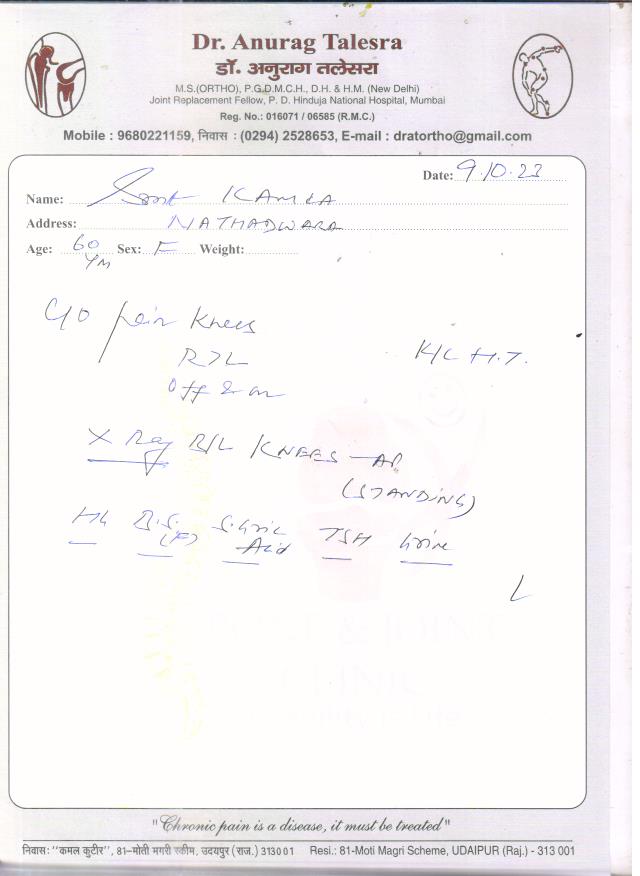 Dr. Anurag Talesra
डॉ. अनुराग तलेसरा
M.S.(ORTHO), P.G.D.M.C.H., D.H. & H.M. (New Delhi)
Joint Replacement Fellow, P. D. Hinduja National Hospital, Mumbai
Reg. No.: 016071 / 06585 (R.M.C.)
Mobile : 9680221159, निवास : (0294) 2528653, E-mail : dratortho@gmail.com
Date: 9.10.23
Name: Smt KAMLA
Address: NATHADWARA
Age: 60 Sex: F Weight:
C/O pain Knees
R>L K/C H.T.
Off & on
X Ray R/L KNEES AP
(STANDING)
B.S. S. Uric TSH Urine
(F) Acid
BONE & JOINT
CLINIC
"Chronic pain is a disease, it must be treated"
निवास: "कमल कुटीर", 81-मोती मगरी स्कीम, उदयपुर (राज.) 313001 Resi.: 81-Moti Magri Scheme, UDAIPUR (Raj.) - 313 001